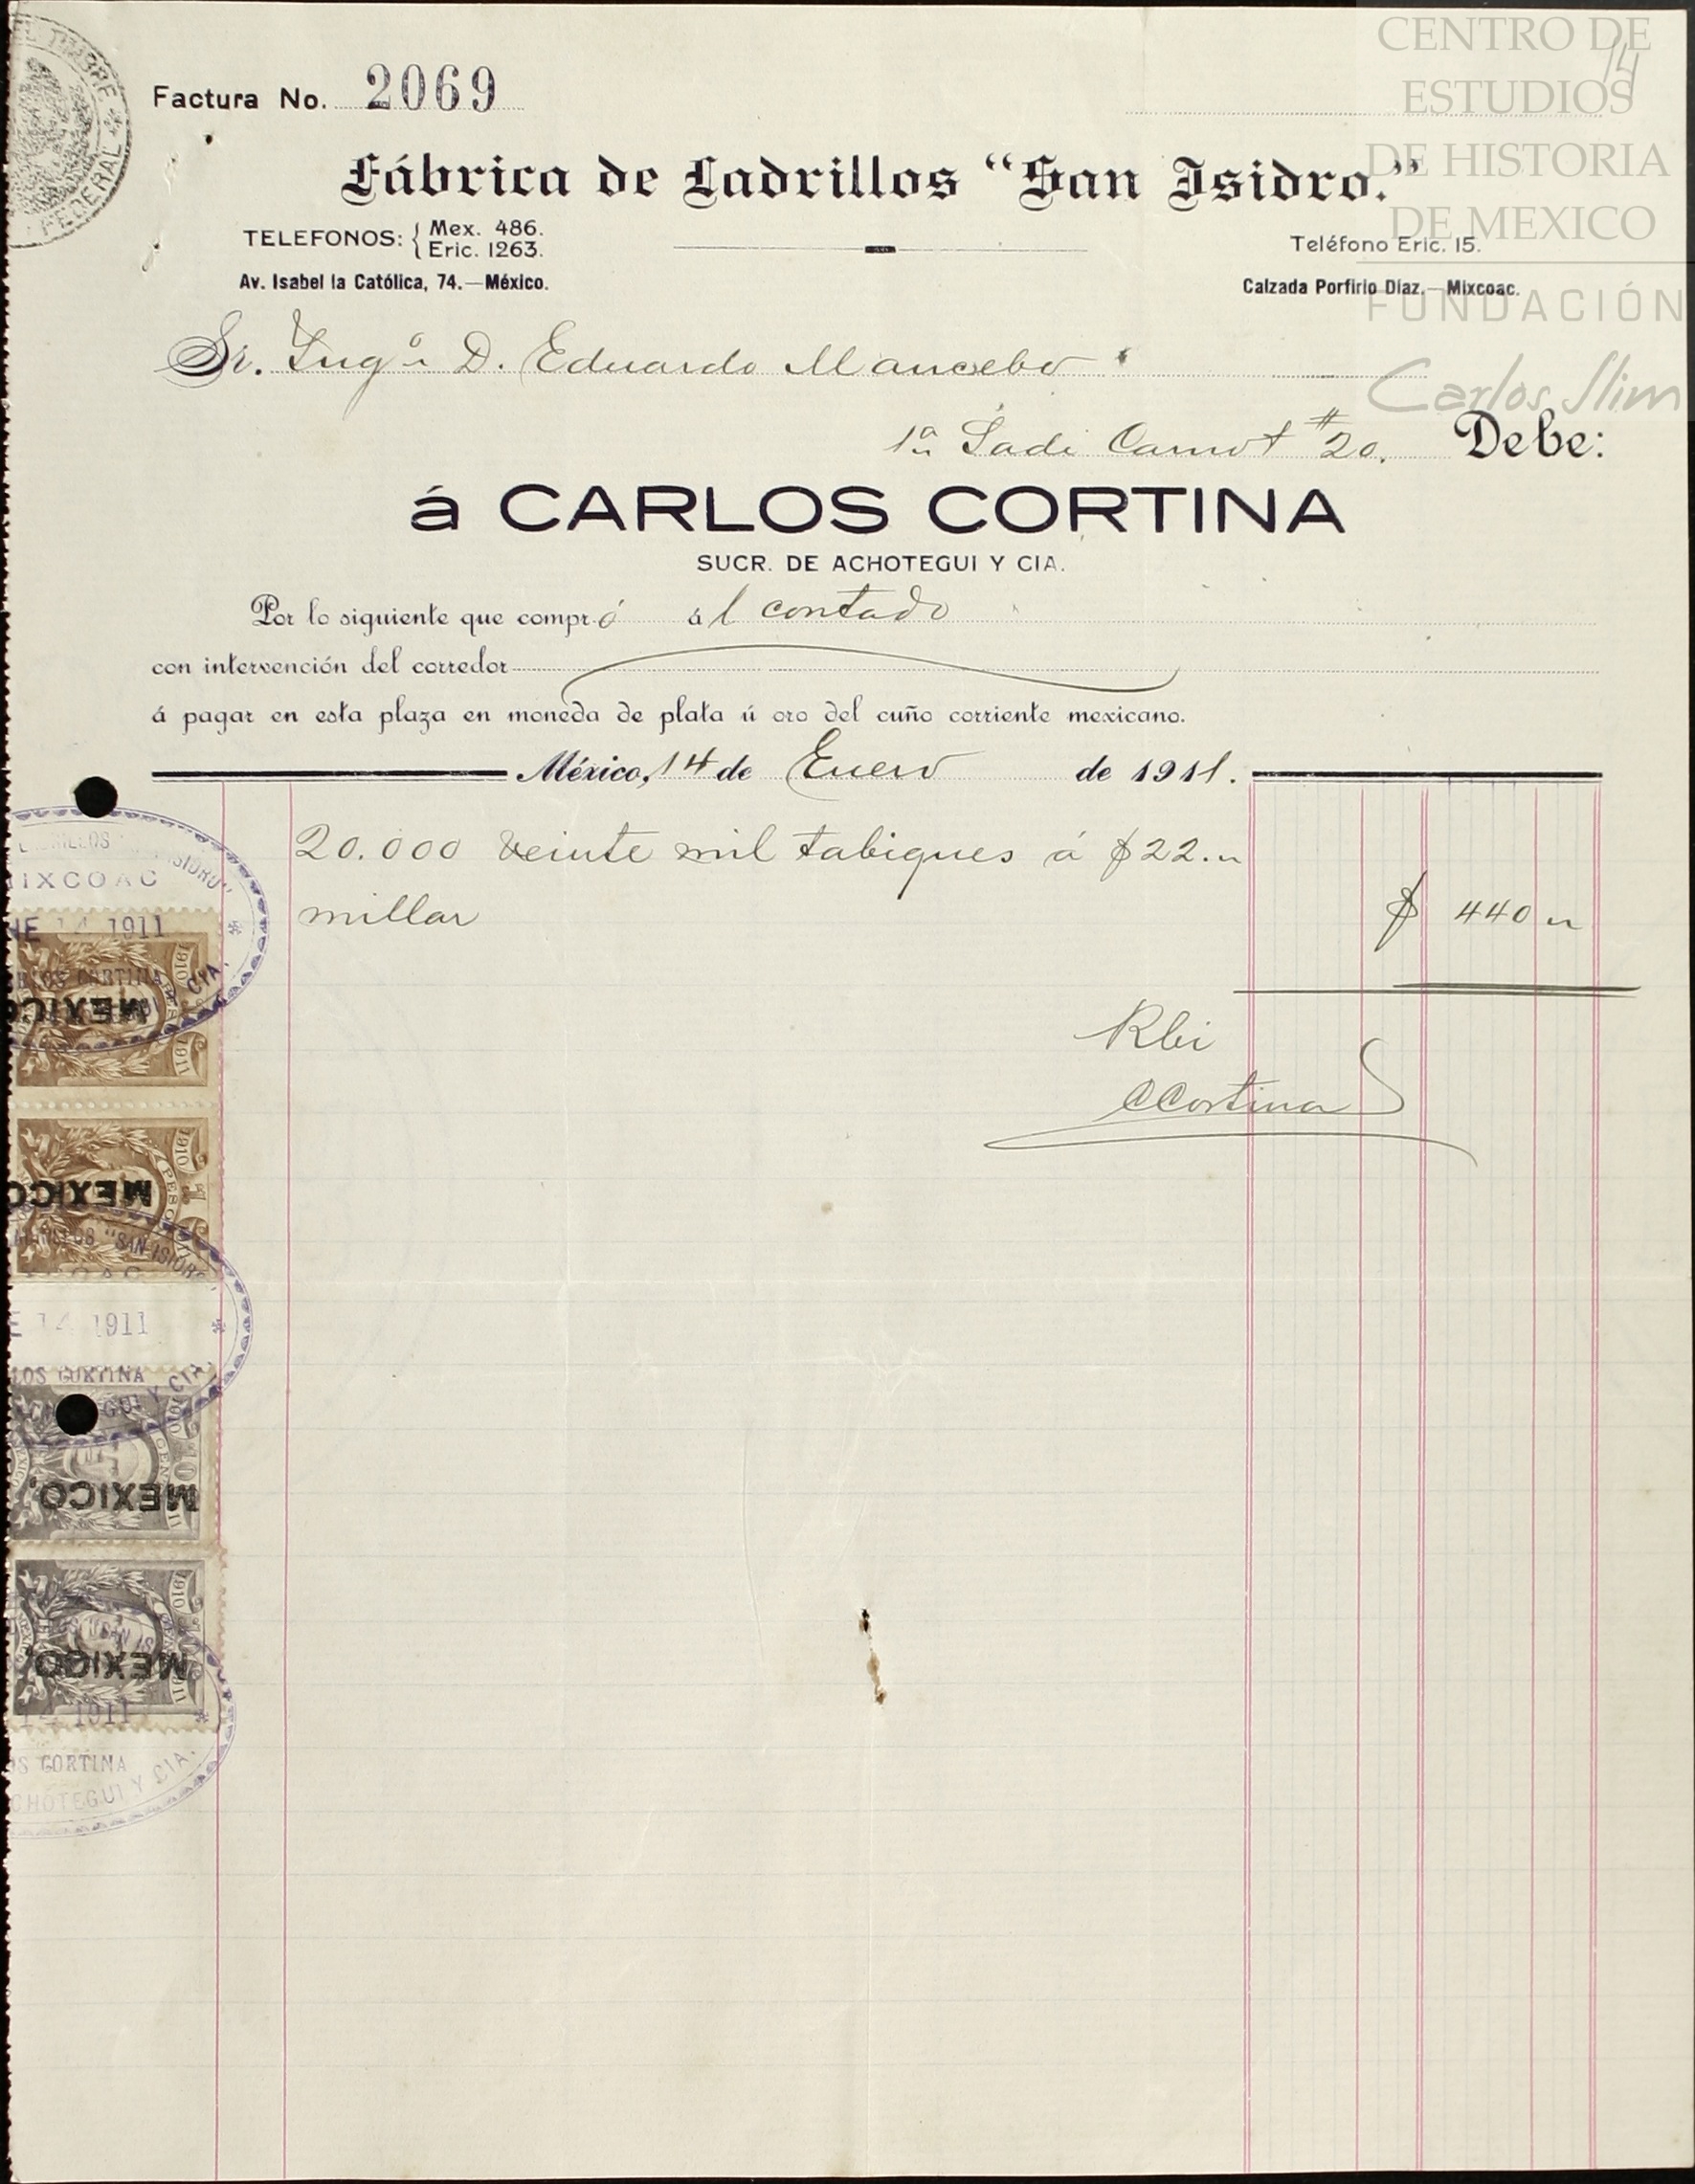 CENTRO DE
ESTUDIOS
DE HISTORIA
DE MEXICO
FUNDACIÓN
Carlos Slim
14
EL TIMBRE
FEDERAL
Factura No. 2069
Fábrica de Ladrillos "San Isidro."
TELEFONOS: { Mex. 486.
Eric. 1263.
Av. Isabel la Católica, 74.—México.
Teléfono Eric. 15.
Calzada Porfirio Diaz.—Mixcoac.
Sr. Ingo. D. Eduardo Mancebo
1a. Sadi Carnot #20. Debe:
á CARLOS CORTINA
SUCR. DE ACHOTEGUI Y CIA.
Por lo siguiente que compró ál contado
con intervención del corredor
á pagar en esta plaza en moneda de plata ú oro del cuño corriente mexicano.
México, 14 de Enero de 1911.
20.000 veinte mil tabiques á $22.„
millar
$ 440 „
Rbi
CCortina
"SAN ISIDRO"
MIXCOAC
ENE 14 1911
CARLOS CORTINA
CIA.
1910
MEXICO
1911
1910
PESO
MEXICO
LADRILLOS "SAN ISIDRO"
E 14 1911
LOS CORTINA
GUI Y CIA.
1910
MEXICO,
1911
1910
MEXICO,
1911
14 1911
OS CORTINA
CHOTEGUI Y CIA.